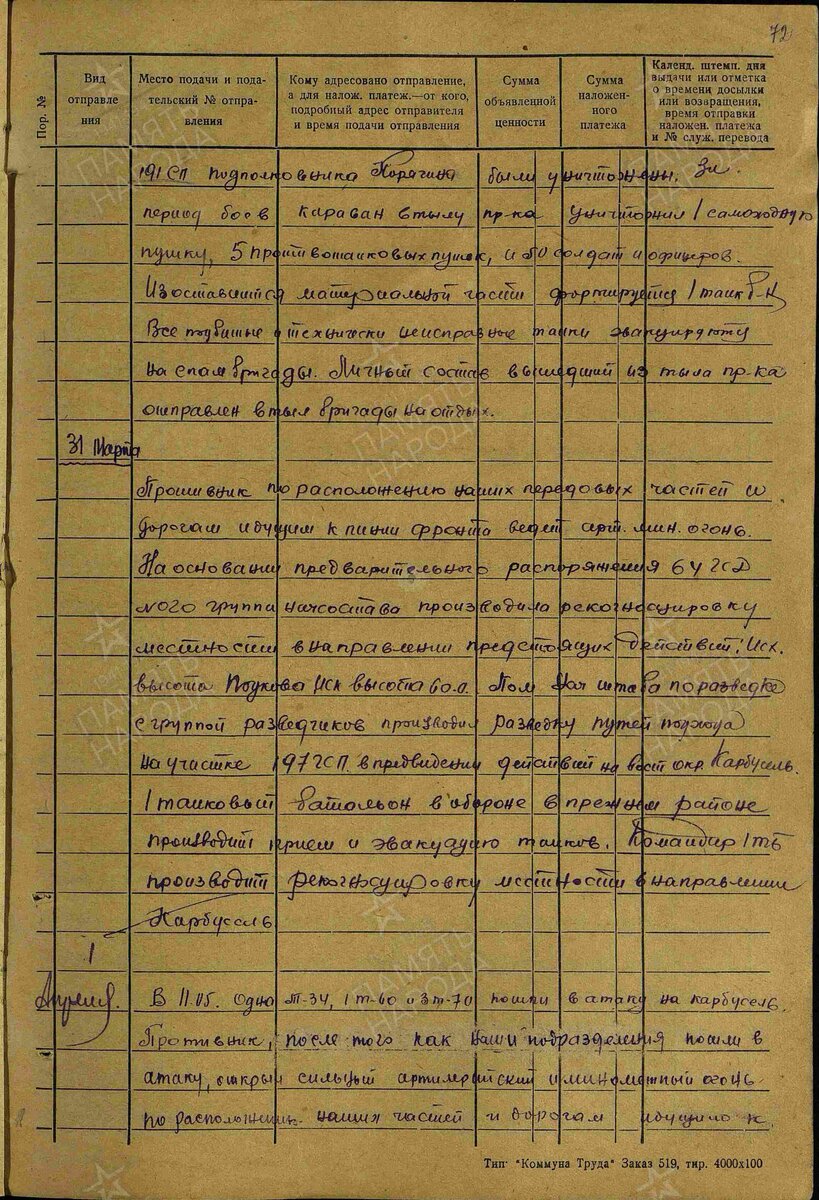 72
Пор. №
Вид отправле ния
Место подачи и пода-
тельский № отправ-
ления
Кому адресовано отправление,
а для налож. платеж.—от кого,
подробный адрес отправителя
и время подачи отправления
Сумма
объявленной
ценности
Сумма
наложен-
ного
платежа
Календ. штемп. дня
выдачи или отметка
о времени досылки
или возвращения,
время отправки
наложен. платежа
и № служ. перевода
191 СП подполковника были уничтожены. За
период боев караван в тылу пр-ка уничтожил 1 самоходную
пушку, 5 противотанковых пушек, и 50 солдат и офицеров.
Из оставшейся материальной части формируется 1 танк б-н
Все подбитые и технически неисправные танки эвакуируются
на спам бригады. Личный состав вышедший из тыла пр-ка
отправлен в тыл бригады на отдых.
31 Марта
Противник по расположению наших передовых частей и
дорогам идущим к линии фронта ведет арт. мин. огонь.
На основании предварительного распоряжения 64 ГСД
группа начсостава производила рекогносцировку
местности в направлении предстоящих действий: Иск.
высота Подкова Иск высота 60.0. Пом Нач штаба по разведке
с группой разведчиков производил разведку путей подхода
на участке 197 ГСП. в предвидении действий на вост окр. Карбусель.
1 танковый батальон в обороне в прежнем районе
производит прием и эвакуацию танков. Командир 1 тб
производит рекогнсцировку местности в направлении
Карбусель
1
Апреля.
В 11.05. одна Т-34, 1 т-60 и 3 т-70 пошли в атаку на Карбусель.
Противник, после того как наши подразделения пошли в
атаку, открыл сильный артилерийский и минометный огонь
по расположен. наших частей и дорогам идущило к.
Тип· "Коммуна Труда" Заказ 519, тир. 4000х100
ПАМЯТЬ НАРОДА